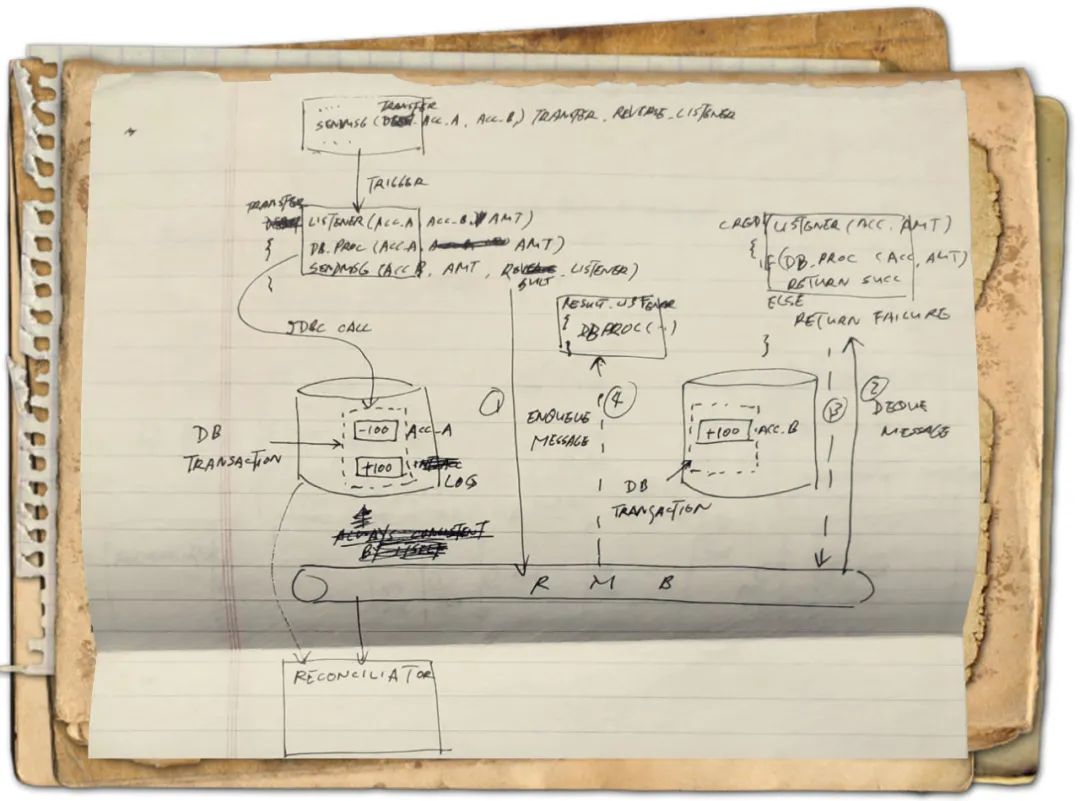 TRANSFER
SENDMSG (ACC.A, ACC.B,) TRANSFER. REVERSE_LISTENER
TRIGGER
TRANSFER
LISTENER (ACC.A, ACC.B, AMT)
{
DB.PROC (ACC.A, AMT)
SENDMSG (ACC B, AMT, RESULT. LISTENER)
}
JDBC CALL
CREDIT LISTENER (ACC, AMT)
{ IF (DB.PROC (ACC, AMT)
RETURN SUCC
ELSE
RETURN FAILURE
}
RESULT.LISTENER
{
DBPROC(--)
}
DB
TRANSACTION
-100 ACC-A
+100
LOG
ALWAYS CONSISTENT
BY ITSELF
1
ENQUEUE
MESSAGE
4
+100 ACC.B
DB
TRANSACTION
3
2
DEQUE
MESSAGE
R M B
RECONCILIATOR